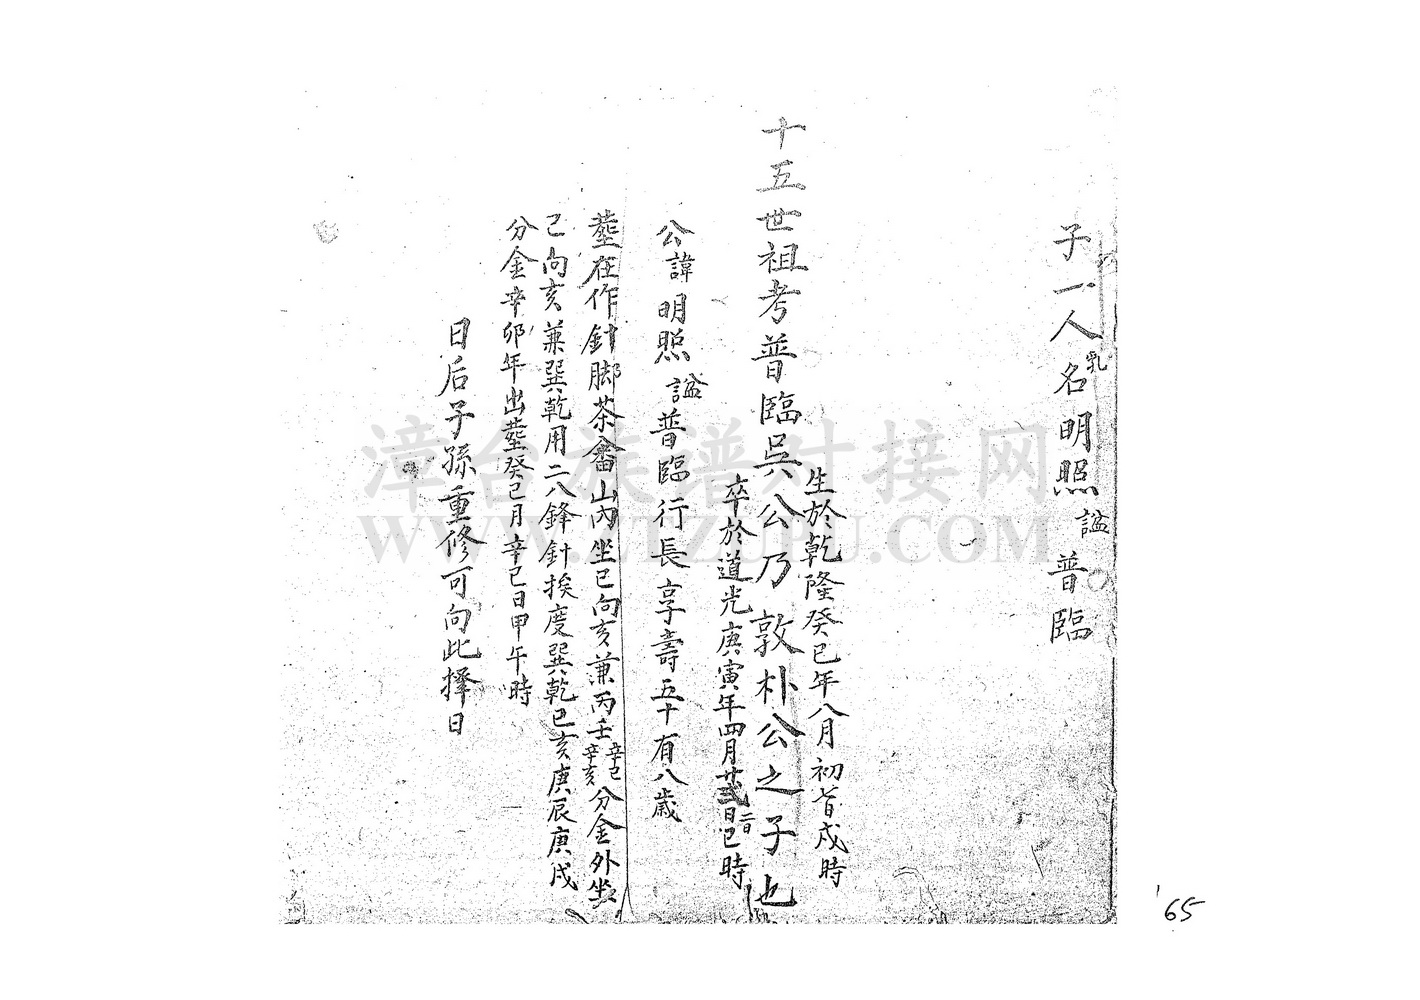 子一人乳名明照諡普臨
十五世祖考普臨吳公乃敦朴公之子也
生於乾隆癸巳年八月初七日戌時
卒於道光庚寅年四月廿二日巳時
公諱明照諡普臨行長享壽五十有八歲
塟在作針脚茶畬山內坐巳向亥兼丙壬辛巳辛亥分金外坐
己向亥兼巽乾用二八鋒針挨度巽乾巳亥庚辰庚戌
分金辛卯年出塟癸巳月辛巳日甲午時
日后子孫重修可向此擇日
漳台族谱对接网
WWW.ZTZUPU.COM
65